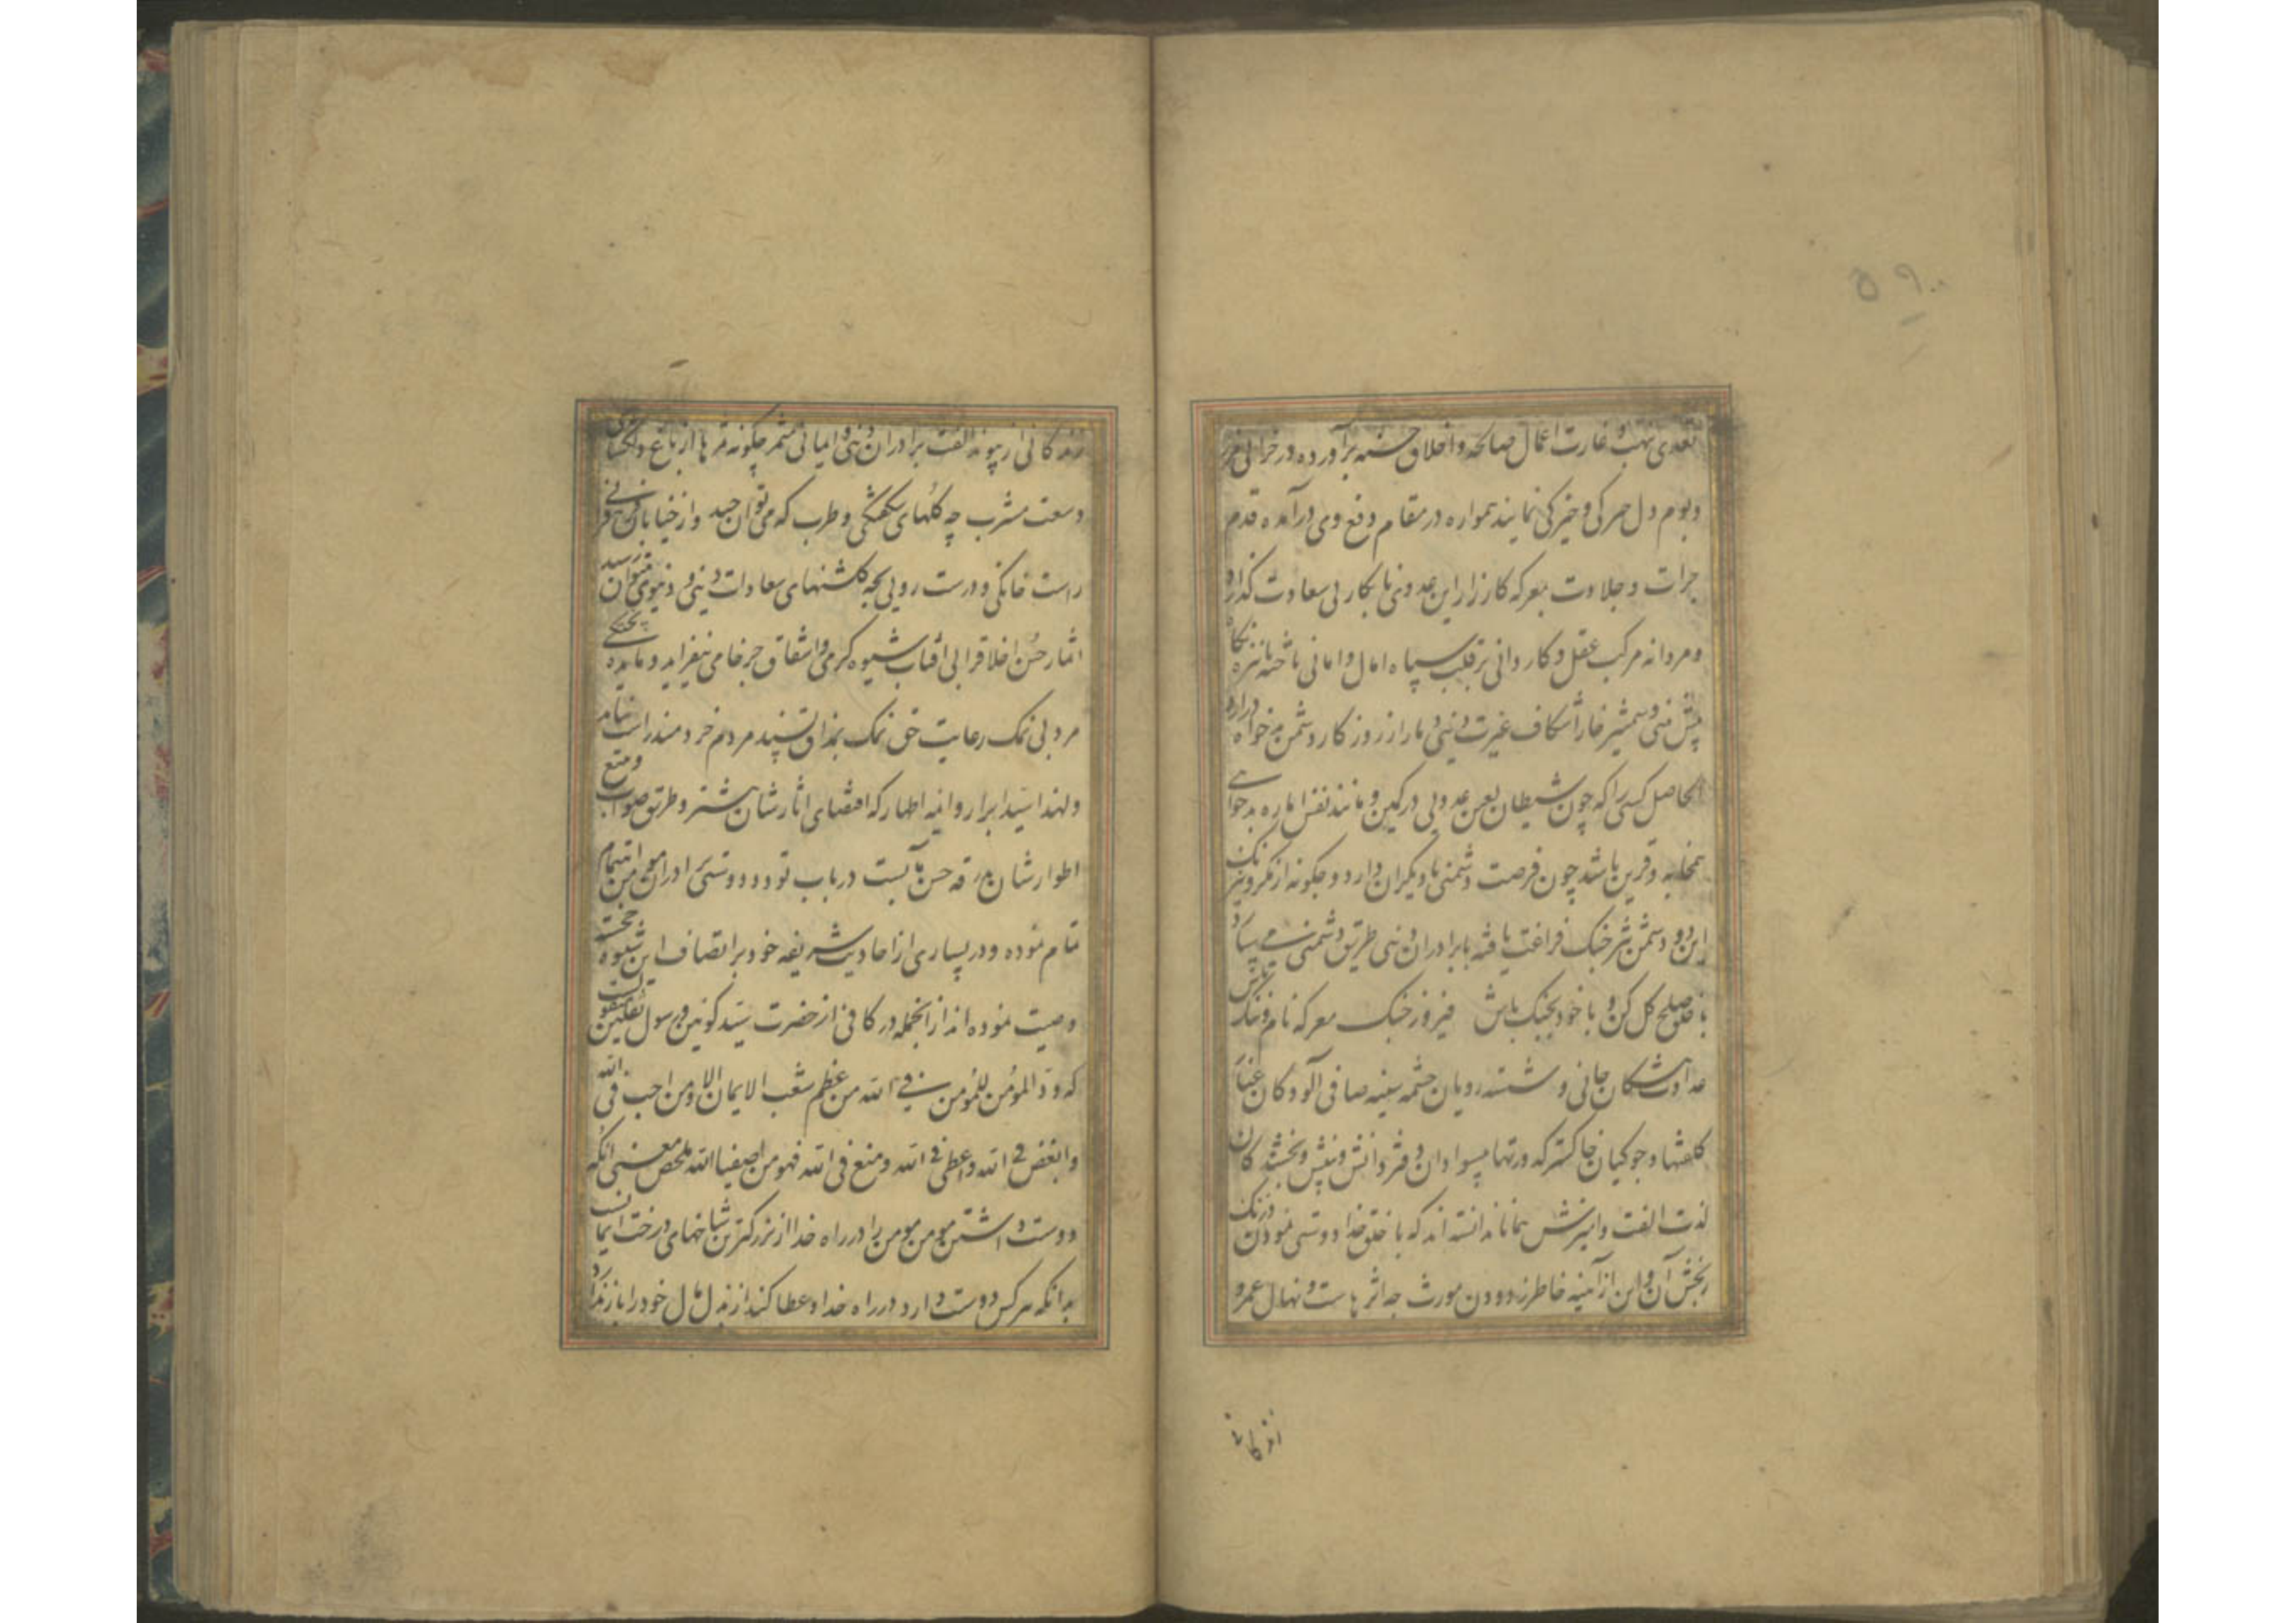 ۵۹۰
تعدی نهب و غارت اعمال صالحه و اخلاق حسنه برآورده در خرابی مرز
و بوم دل حیرکی و خیرکی نمایند همواره در مقام دفع وی درآمده قدم
جرات و جلادت بمعرکه کارزار این عدوی نابکار بی سعادت گذارد
و مردانه مرکب عقل و کاردانی بر قلب سپاه امال و امانی تاخته بانیزه نگاه
پیش بینی و شمشیر خارا شکاف غیرت دینی دمار از روزگار دشمن بدخواه برآرد
الحاصل کسی را که چون شیطان لعین عدوی در کمین و مانند نفس اماره بدخواهی
همخانه و قرین باشد چون فرصت دشمنی با دیگران دارد و چگونه از مکر و نیرنگ
این دو دشمن شرخنک فراغت یافته با برادران دینی طریق دشمنی می سپارد
با خلق صلح کل کن و با خود بجنک باش فیروز جنک معرکه نام و ننک باش
عداوت پیشکان جانی و شسته رویان چشمه سینه صافی آلودکان غبار
کلفتها و جوکیان خاکستر کدورتها بیسوادان دفتر دانش و بینش و نچشندکان
لذت الفت و امیزش همانا ندانسته اند که با خلق خدا دوستی نمودن و زنک
رنجش آن و این از آینه خاطر زدودن مورث چه اثرهاست و نهال عمر و
زندکانی
زندکانی از پیوند الفت برادران دینی و ایمانی مثمر چگونه ثمرها از باغ دلکشای
وسعت مشرب چه گلهای شکفتگی و طرب که می توان چید و از خیابان
راست خانگی و درست رویی بچه گلشنهای سعادات دینی و دنیوی میتوان رسید
اثمار حسن اخلاق را بی آفتاب شیوه کرمی و اشفاق جز خامی نیفزاید و مایده پختگی
مردمی بی نمک رعایت حق نمک بمذاق پسند مردم خردمند راست نیاید
و لهذا سید ابرار و ائمه اطهار که اقتضای اثارشان و طریق صواب و متبع
اطوارشان بدرقه حسن مآبست در باب تودد و دوستی برادران مومن اهتمام
تمام نموده و در بسیاری از احادیث شریفه خود بر اتصاف این شیوه خجسته
وصیت نموده اند از انجمله در کافی از حضرت سید کونین و رسول ثقلین منقولست
که ود المومن للمومن فی الله من عظم شعب الایمان الا و من احب فی الله
و ابغض فی الله و اعطی فی الله و منع فی الله فهو من اصفیا الله ملخص معنی انکه
دوست داشتن مومن مومن را در راه خدا از بزرکترین شاخهای درخت ایمانست
بدانکه هر کس دوست دارد در راه خدا و عطا کند از بذل مال خود را باز ندارد